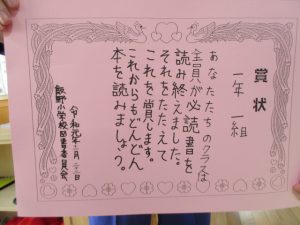 賞状
一年 一組
あなたたちのクラスは
全員が必読書を
読み終えました。
それをたたえて
これを賞します。
これからもどんどん
本を読みましょう。
令和元年
飯野小学校図書委員会